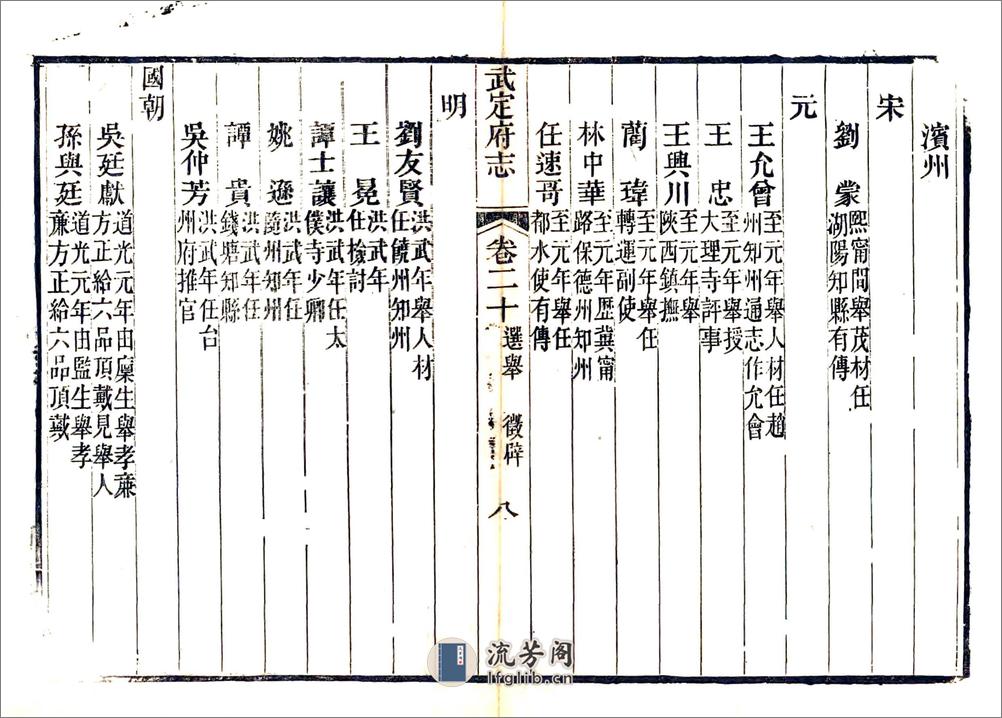 濱州
宋
劉蒙 熙甯間舉茂材任湖陽知縣有傳
元
王允曾 至元年舉人材任趙州知州通志作允會
王忠 至元年舉授大理寺評事
王興川 至元年舉陝西鎮撫
藺瑋 至元年舉任轉運副使
林中華 至元年歷冀甯路保德州知州
任速哥 至元年舉任都水使有傳
武定府志 卷二十 選舉 徵辟 八
明
劉友賢 洪武年舉人材任饒州知州
王冕 洪武年任檢討
譚士讓 洪武年任太僕寺少卿
姚遜 洪武年任隨州知州
譚貴 洪武年任錢塘知縣
吳仲芳 洪武年任台州府推官
國朝
吳廷獻 道光元年由廩生舉孝廉方正給六品頂戴見舉人
孫與廷 道光元年由監生舉孝廉方正給六品頂戴
流芳阁
lfglib.cn